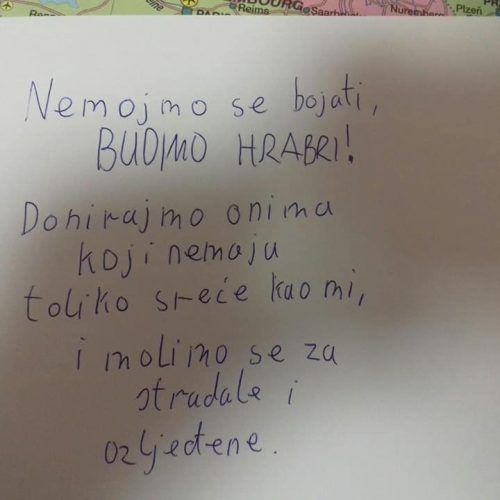 Reims
Nuremberg
Plzeň
Nemojmo se bojati,
BUDIMO HRABRI!
Donirajmo onima
koji nemaju
toliko sreće kao mi,
i molimo se za
stradale i
ozljeđene.